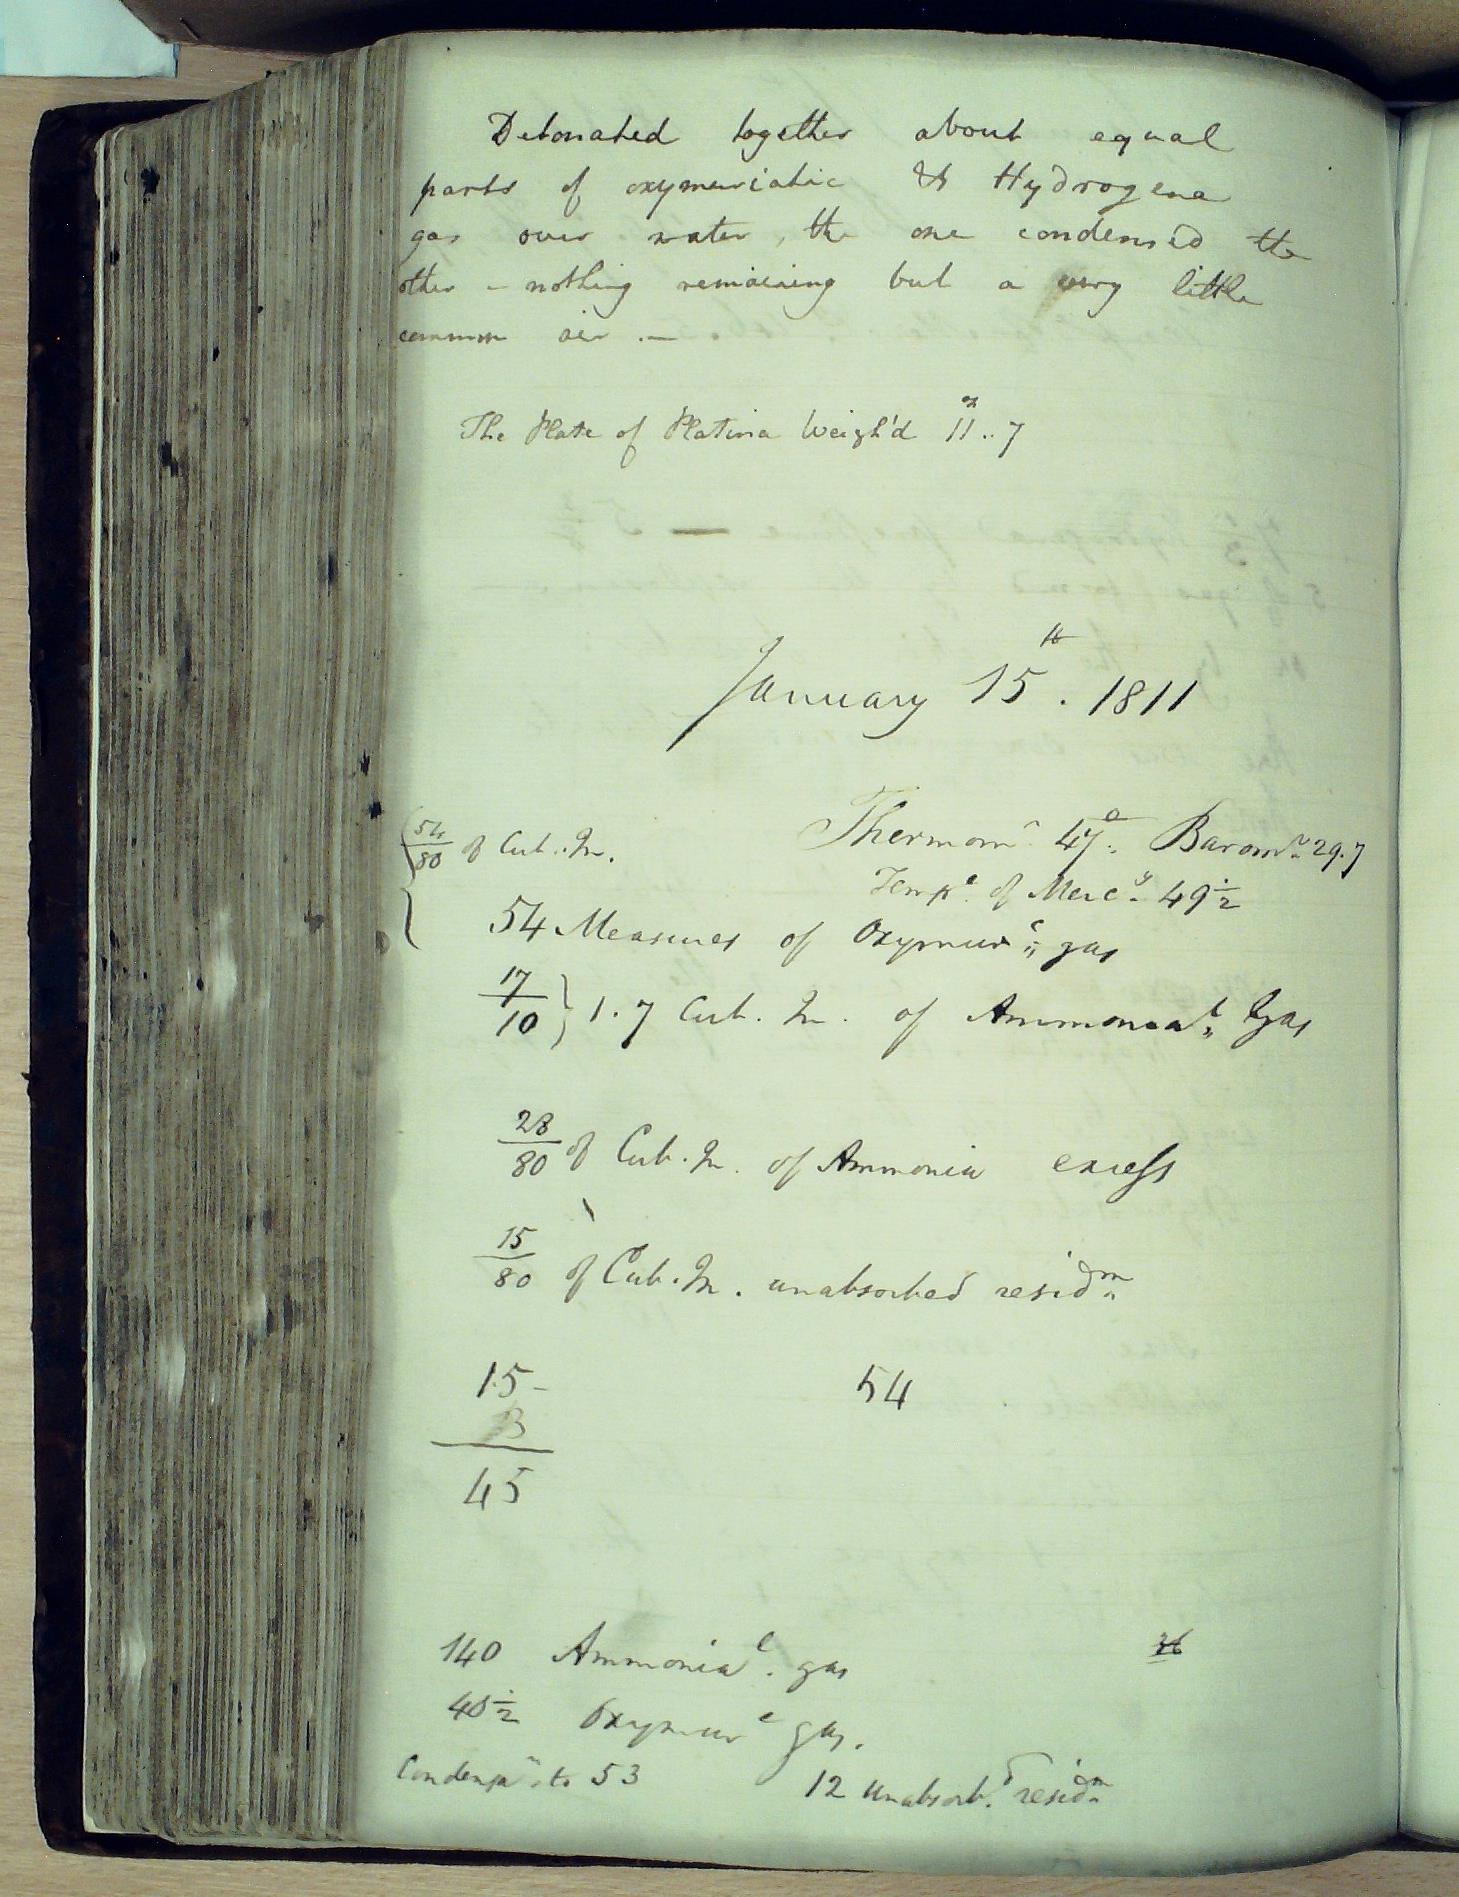 Detonated together about equal
parts of oxymuriatic & Hydrogene
gas over water, the one condensed the
other – nothing remaining but a very little
common air. –
The Plate of Platina Weigh'd 11 oz..7
January 15th. 1811
54/80 of Cub. In. Thermomr 47°. Baromr. 29.7
Tempe. of Mercy. 49 1/2
54 Measures of Oxymurc. gas
17/10 } 1.7 Cub. In. of Ammonial. gas
28/80 of Cub. In. of Ammonia excess
15/80 of Cub. In. unabsorbed residm.
15 – 54
3
45
140 Ammonial. gas
40 1/2 Oxymurc gas.
Condensn. to 53 12 unabsorbd. residm.